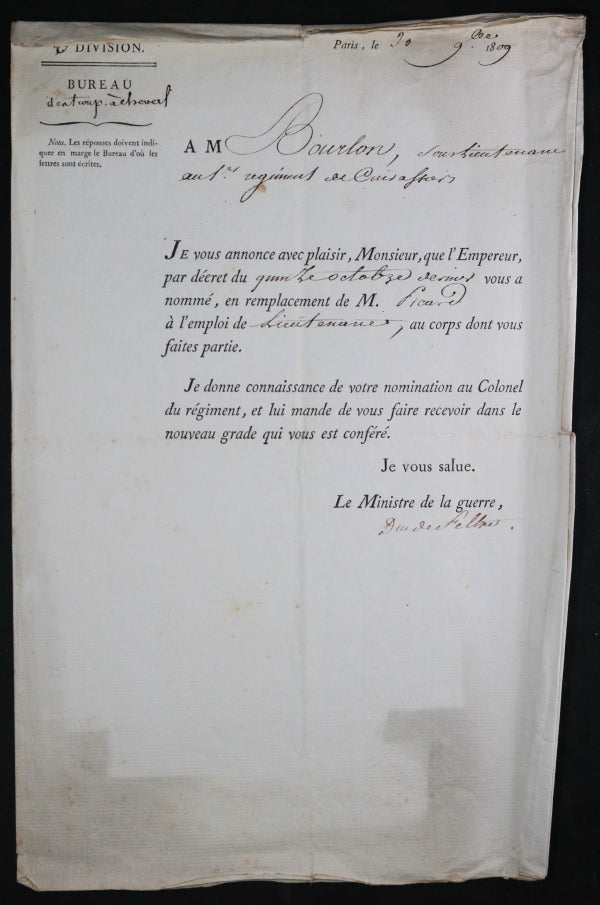 DIVISION.
Paris, le 30 9bre 1809
BUREAU
des troup. à cheval
Nota. Les réponses doivent indi-
quer en marge le Bureau d'où les
lettres sont écrites.
A M Bourlon, Sous Lieutenant
au 1er regiment de Cuirassiers
JE vous annonce avec plaisir, Monsieur, que l'Empereur,
par décret du quinze octobre dernier vous a
nommé, en remplacement de M. Picard
à l'emploi de Lieutenant, au corps dont vous
faites partie.
Je donne connaissance de votre nomination au Colonel
du régiment, et lui mande de vous faire recevoir dans le
nouveau grade qui vous est conféré.
Je vous salue.
Le Ministre de la guerre,
Duc de Feltre.